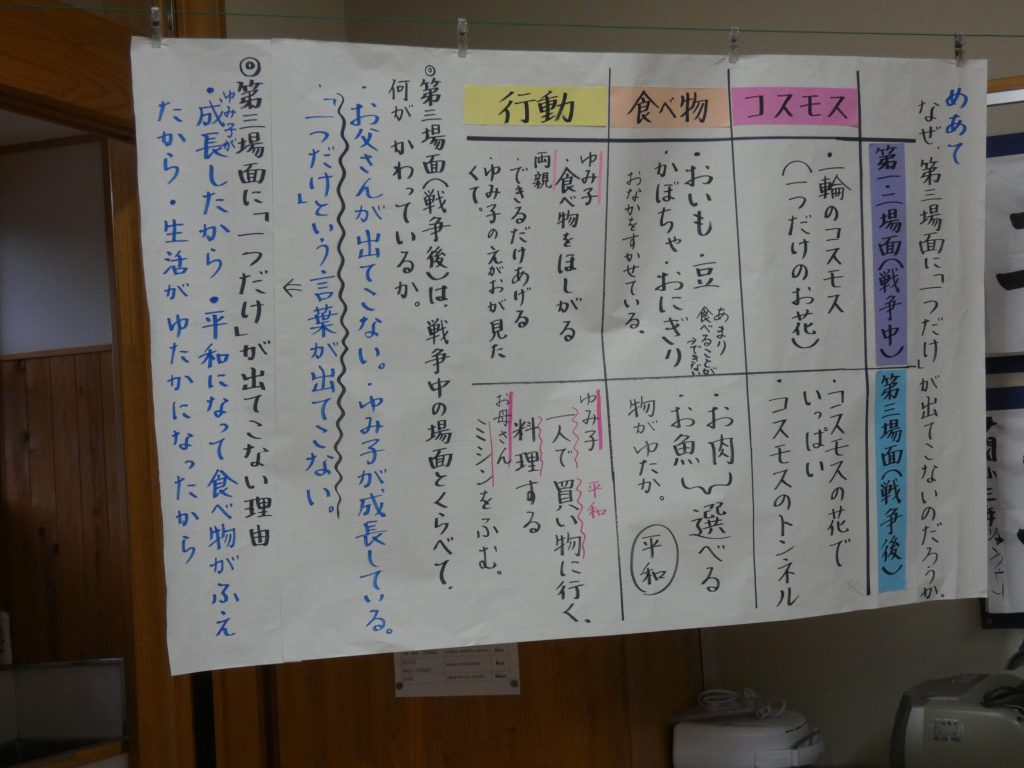 めあて
なぜ、第三場面に「一つだけ」が出てこないのだろうか。
第一・二場面(戦争中)
第三場面(戦争後)
コスモス
・一輪のコスモス
(一つだけのお花)
・コスモスの花で
いっぱい
・コスモスのトンネル
食べ物
・おいも・豆
かぼちゃ・おにぎり
あまり
食べることが
できない
おなかをすかせている。
・お肉
・お魚
選べる
物がゆたか。
平和
行動
ゆみ子
・食べ物をほしがる
両親
・できるだけあげる
・ゆみ子のえがおが見た
くて、
ゆみ子
一人で買い物に行く。
平和
料理する
お母さん
ミシンをふむ。
◎第三場面(戦争後)は、戦争中の場面とくらべて、
何がかわっているか。
・お父さんが出てこない。・ゆみ子が成長している。
・「一つだけ」という言葉が出てこない。
←
◎第三場面に「一つだけ」が出てこない理由
ゆみ子が
・成長したから・平和になって食べ物がふえ
たから・生活がゆたかになったから